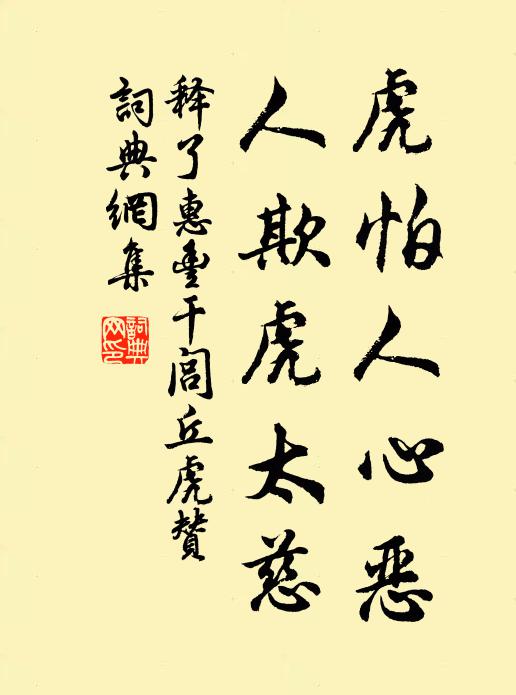 虎怕人心恶
人欺虎太慈
释了惠豊干闾丘虎赞
詞典網集
詞典网印